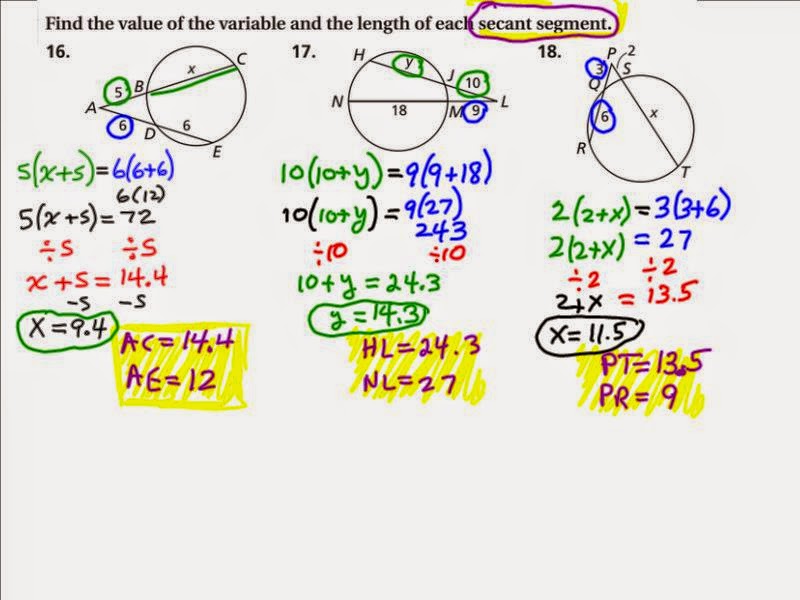 Find the value of the variable and the length of each secant segment.
16.
A
5
B
x
C
6
D
6
E
5(x+5)=6(6+6)
6(12)
5(x+5)=72
÷5 ÷5
x+5=14.4
-5 -5
x=9.4
AC=14.4
AE=12
17.
H
y
J
10
N
18
M
9
L
10(10+y)=9(9+18)
10(10+y)=9(27)
243
÷10 ÷10
10+y=24.3
y=14.3
HL=24.3
NL=27
18.
P
2
3
S
Q
6
x
R
T
2(2+x)=3(3+6)
2(2+x)=27
÷2 ÷2
2+x=13.5
x=11.5
PT=13.5
PR=9